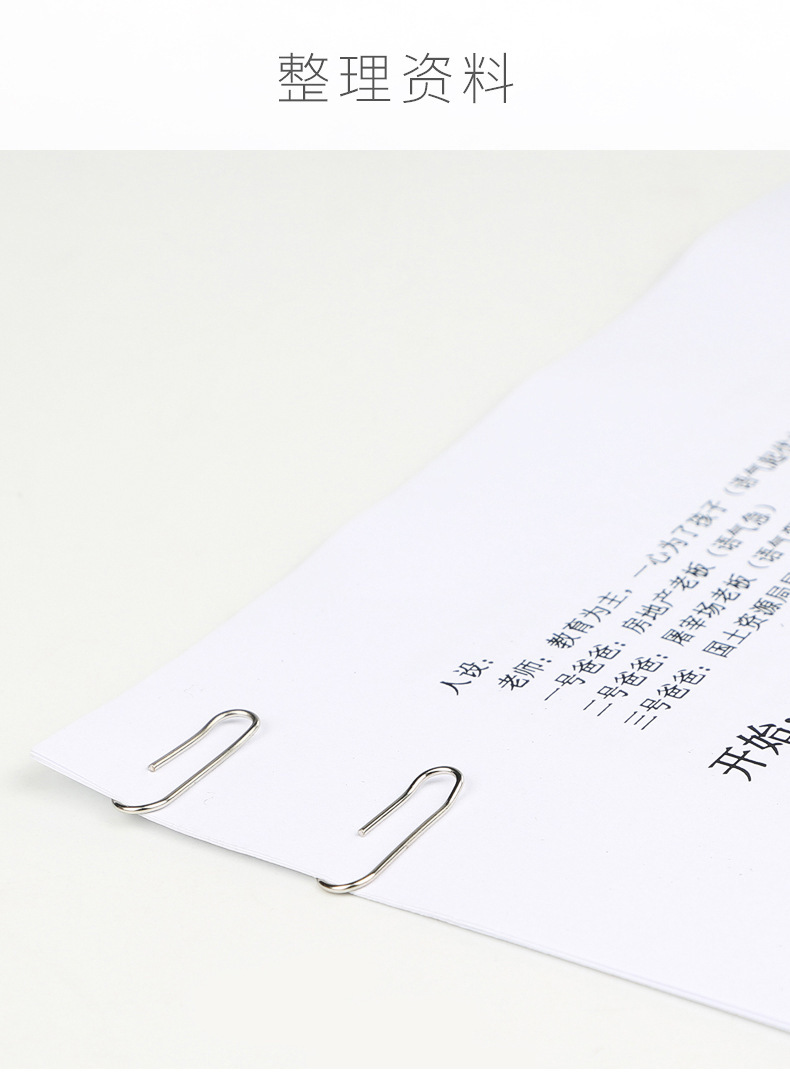 整理资料
人设：
老师：教育为主，一心为了孩子（语气
一号爸爸：房地产老板（语气急）
二号爸爸：屠宰场老板（语气
三号爸爸：国土资源局
开始